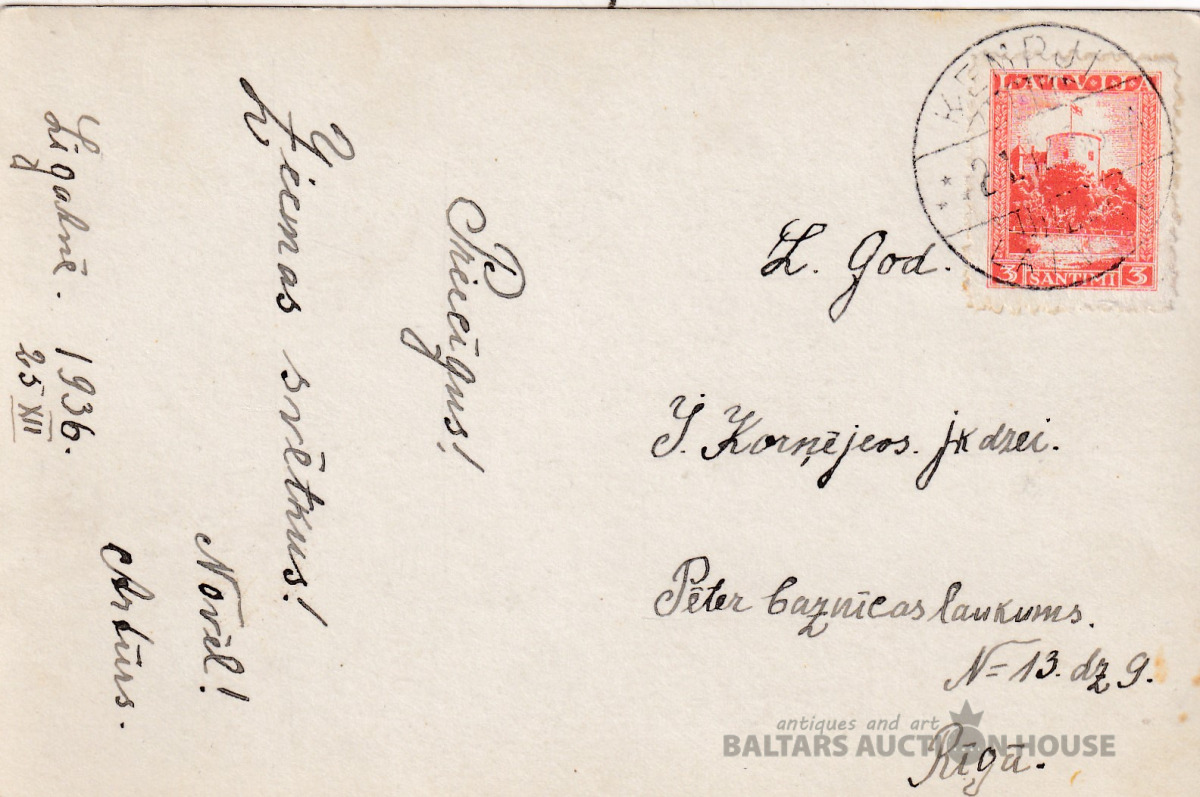 Priecīgus!
Ziemas svētkus!
Novēl!
Artūrs.
1936.
25 XII
LATVIJA
3 SANTIMI 3
Z. God.
J. Korņējeos. jk dzei.
Pēter baznīcas laukums.
N= 13. dz 9.
Rīgā.
antiques and art
BALTARS AUCTION HOUSE